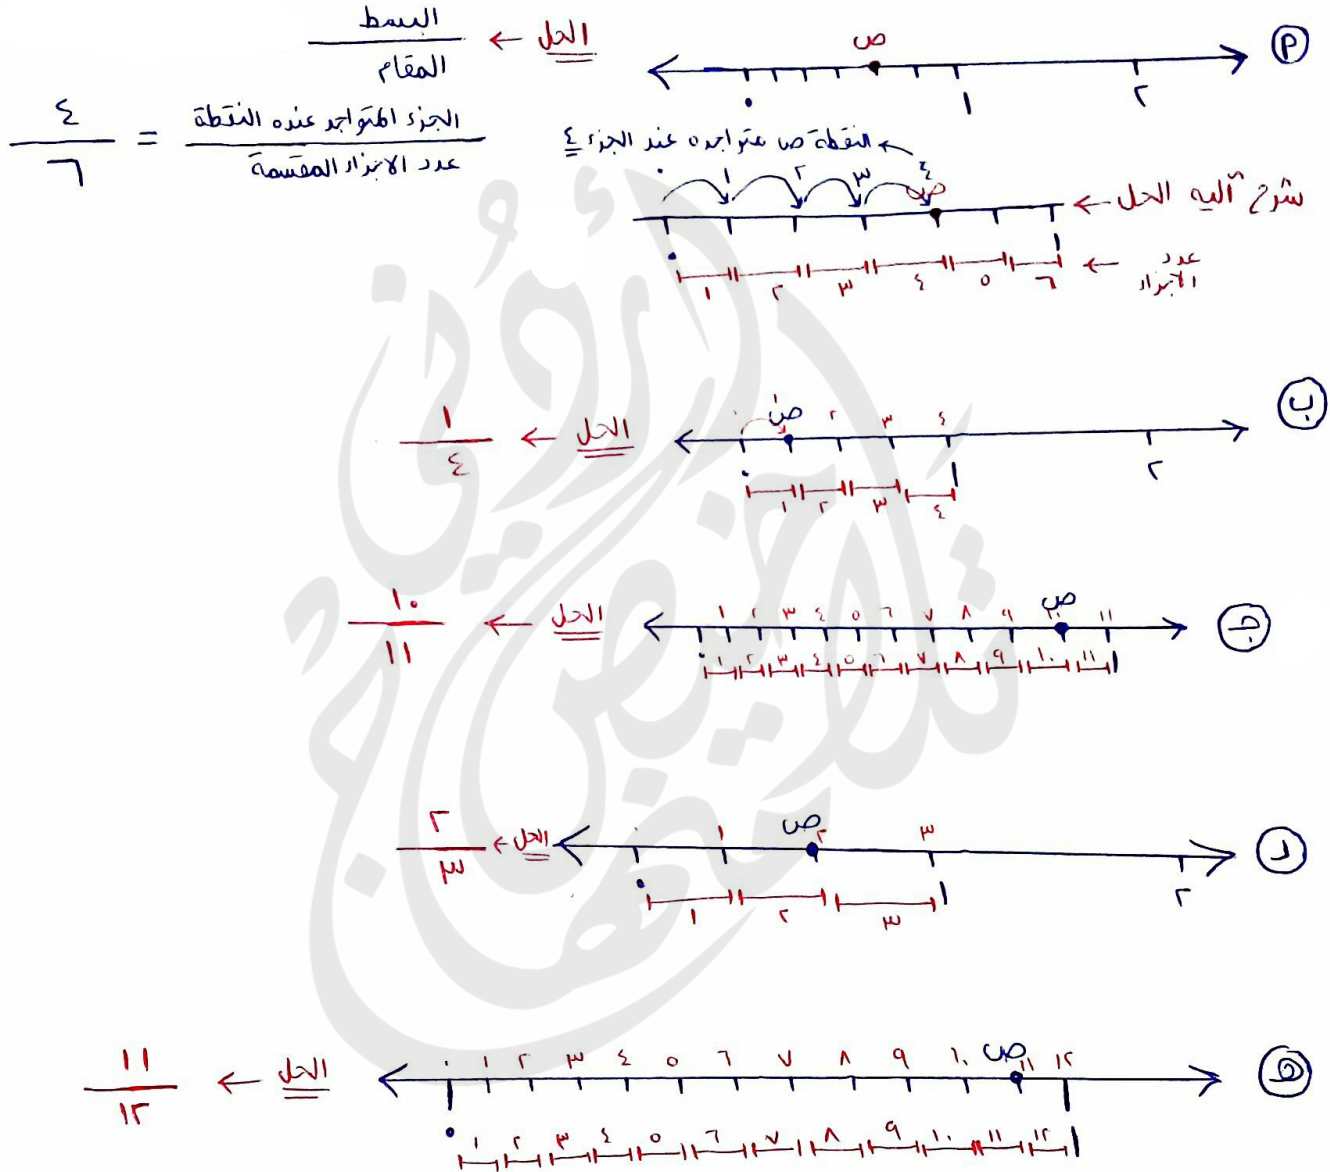 أ
ص
٠ ١ ٢
الحل ← البسط / المقام
الجزء المتواجد عنده النقطة / عدد الاجزاء المقسمة = ٤ / ٦
النقطة ص متواجده عند الجزء ٤
شرح آلية الحل ←
٠ ١ ٢ ٣ ٤
ص
٠ ١
عدد الاجزاء ←
١ ٢ ٣ ٤ ٥ ٦
ب
ص ٢ ٣ ٤
٠ ١ ٢
١ ٢ ٣ ٤
الحل ← ١ / ٤
جـ
ص
١ ٢ ٣ ٤ ٥ ٦ ٧ ٨ ٩ ١٠ ١١
٠ ١
١ ٢ ٣ ٤ ٥ ٦ ٧ ٨ ٩ ١٠ ١١
الحل ← ١٠ / ١١
د
ص
١ ٢ ٣
٠ ١ ٢
١ ٢ ٣
الحل ← ٢ / ٣
هـ
ص
٠ ١ ٢ ٣ ٤ ٥ ٦ ٧ ٨ ٩ ١٠ ١١ ١٢
٠ ١
١ ٢ ٣ ٤ ٥ ٦ ٧ ٨ ٩ ١٠ ١١ ١٢
الحل ← ١١ / ١٢
تلاخيص منهاج أردني